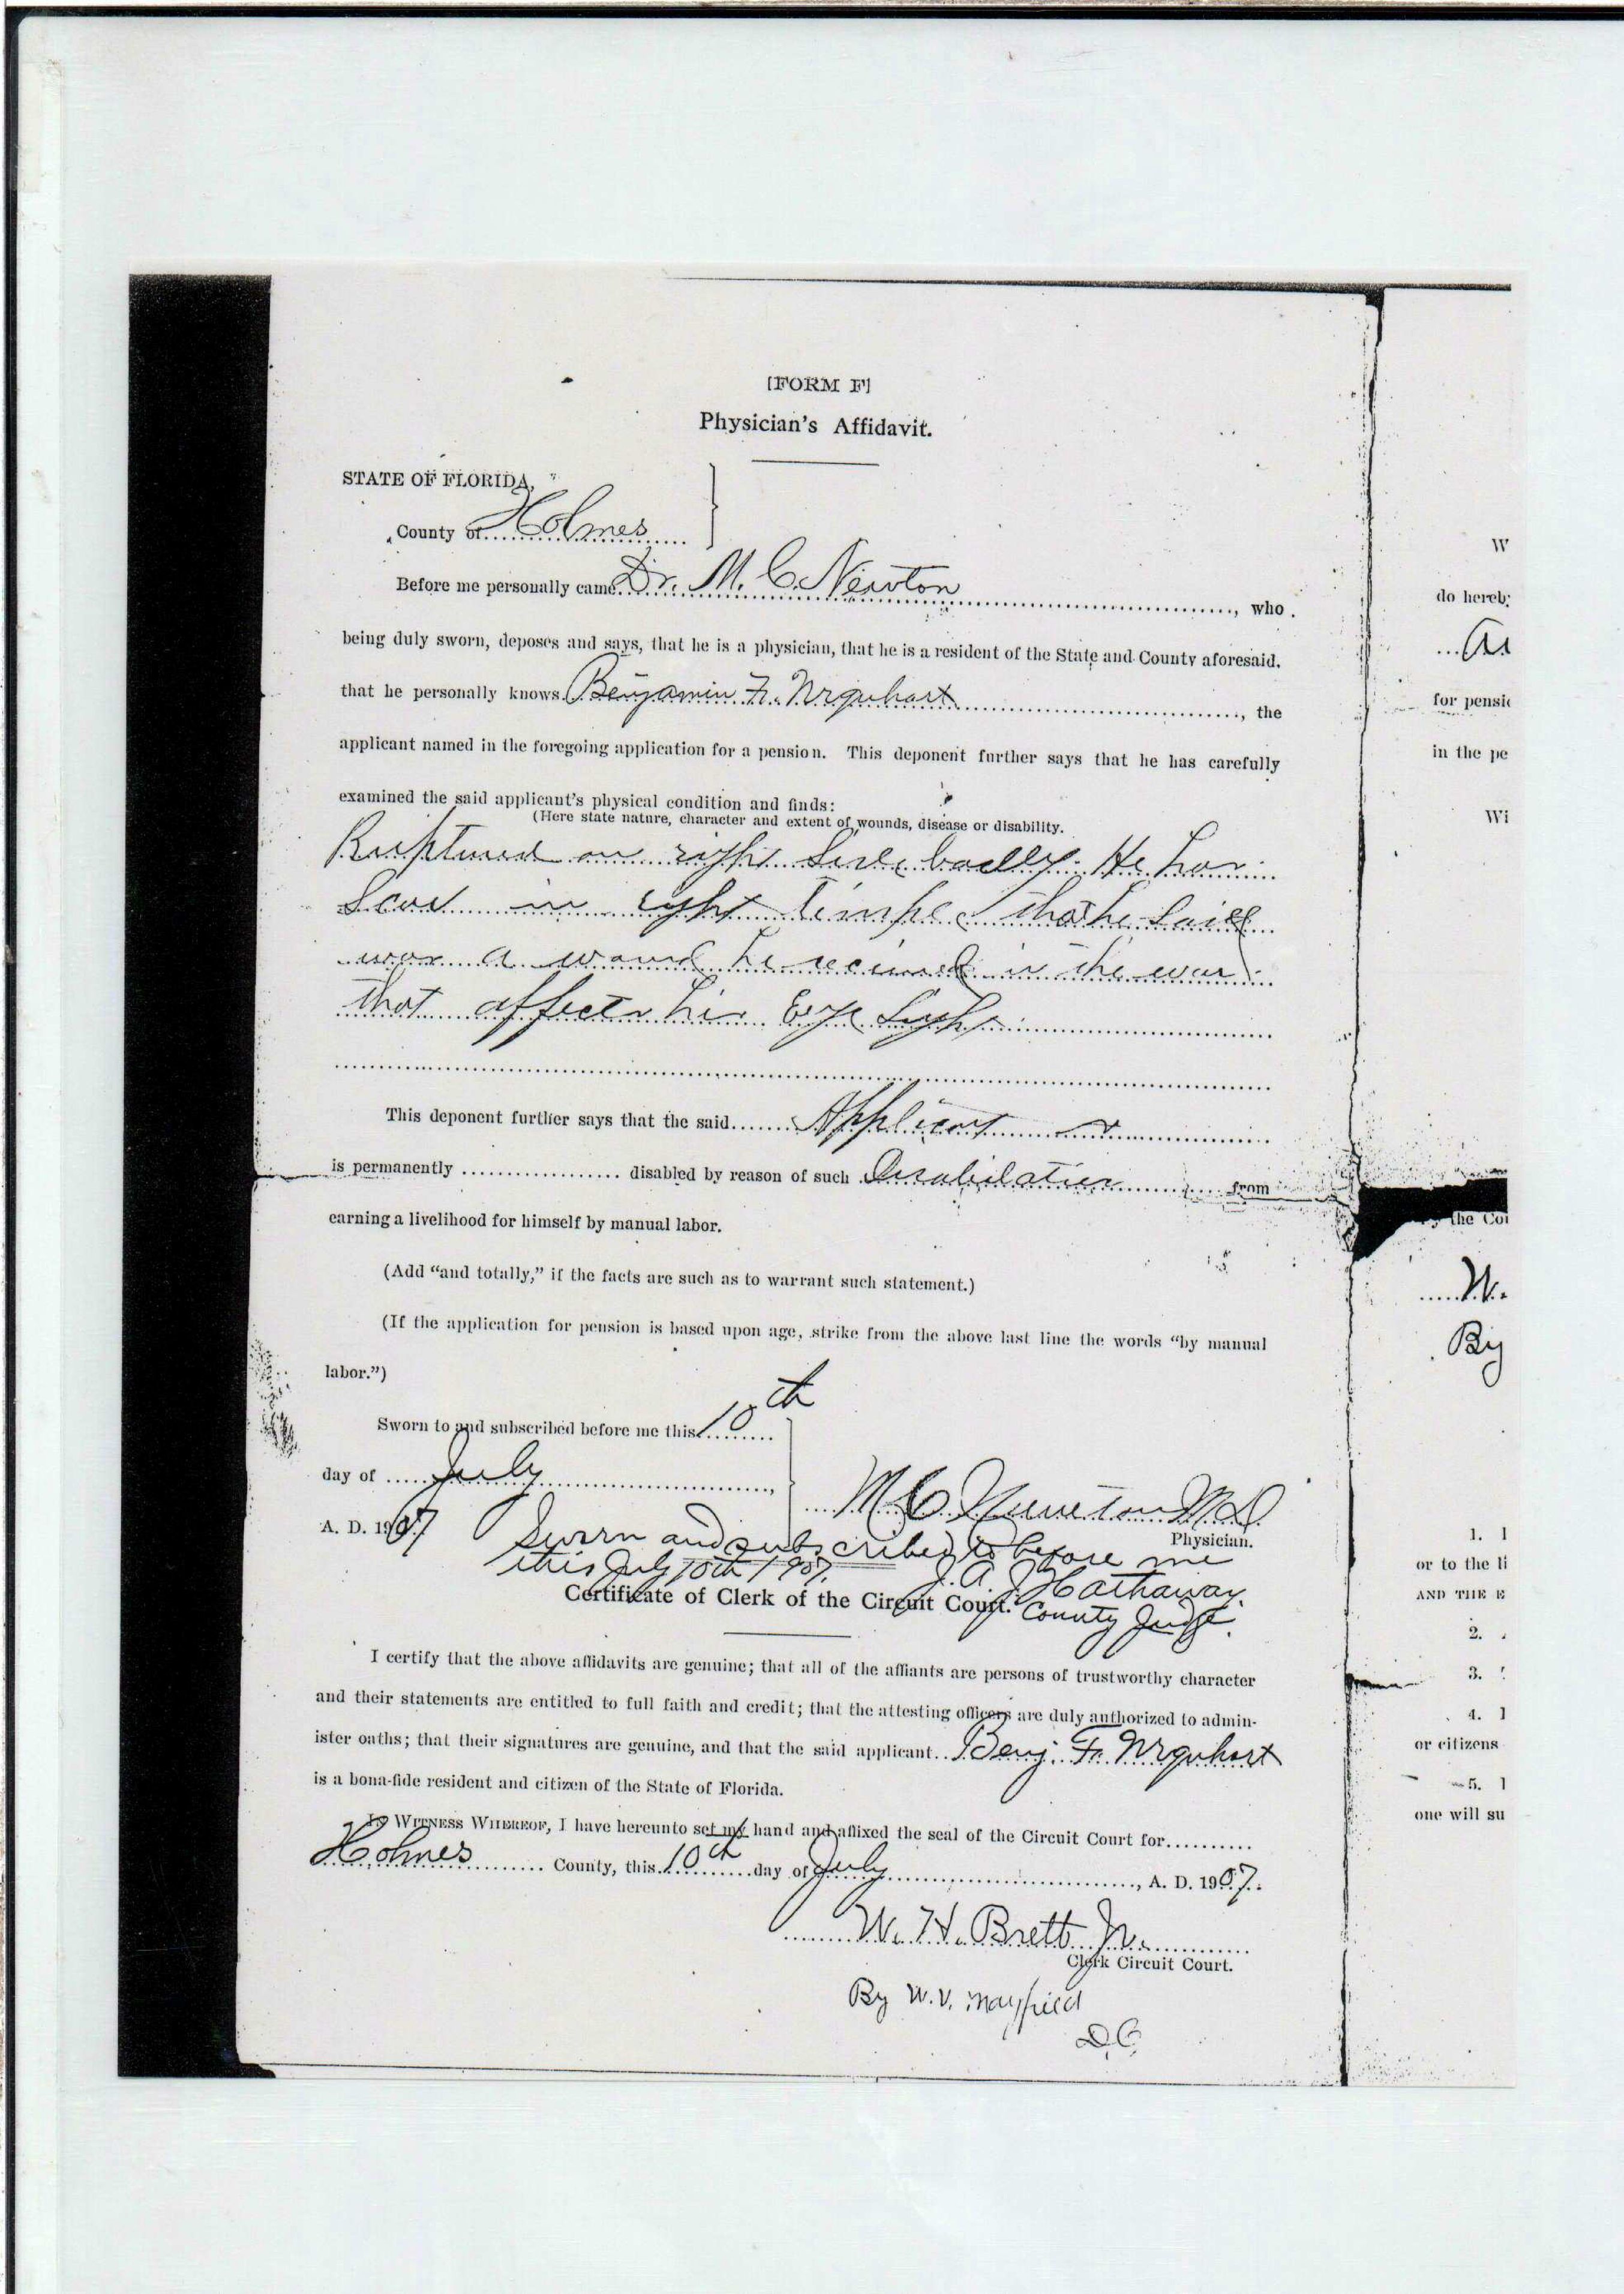 [FORM F]
Physician's Affidavit.
STATE OF FLORIDA,
County of Holmes
Before me personally came Dr. M. C. Newton, who
being duly sworn, deposes and says, that he is a physician, that he is a resident of the State and County aforesaid.
that he personally knows Benjamin F. Urquhart, the
applicant named in the foregoing application for a pension. This deponent further says that he has carefully
examined the said applicant's physical condition and finds:
(Here state nature, character and extent of wounds, disease or disability.
Ruptured on right Side badly. He has
Scar in right temple that he said
was a wound he received in the war
that affects his Eye Sight
This deponent further says that the said Applicant
is permanently disabled by reason of such from
earning a livelihood for himself by manual labor.
(Add "and totally," if the facts are such as to warrant such statement.)
(If the application for pension is based upon age, strike from the above last line the words "by manual
labor.")
Sworn to and subscribed before me this 10th
day of July,
A. D. 1907
M C Newton M D
Physician.
Sworn and subscribed to before me
this July 10th 1907.
J. A. J. Hathaway.
County Judge.
Certificate of Clerk of the Circuit Court.
I certify that the above affidavits are genuine; that all of the affiants are persons of trustworthy character
and their statements are entitled to full faith and credit; that the attesting officers are duly authorized to admin-
ister oaths; that their signatures are genuine, and that the said applicant Benj. F. Urquhart
is a bona-fide resident and citizen of the State of Florida.
IN WITNESS WHEREOF, I have hereunto set my hand and affixed the seal of the Circuit Court for
Holmes County, this 10th day of July, A. D. 1907.
W. H. Brett Jr.
Clerk Circuit Court.
By W. V. Mayfield
D.C.
W
do hereby
for pensi
in the pe
Wi
the Co
W.
By
1.
or to the li
AND THE E
2.
3.
4.
or citizens
5.
one will su